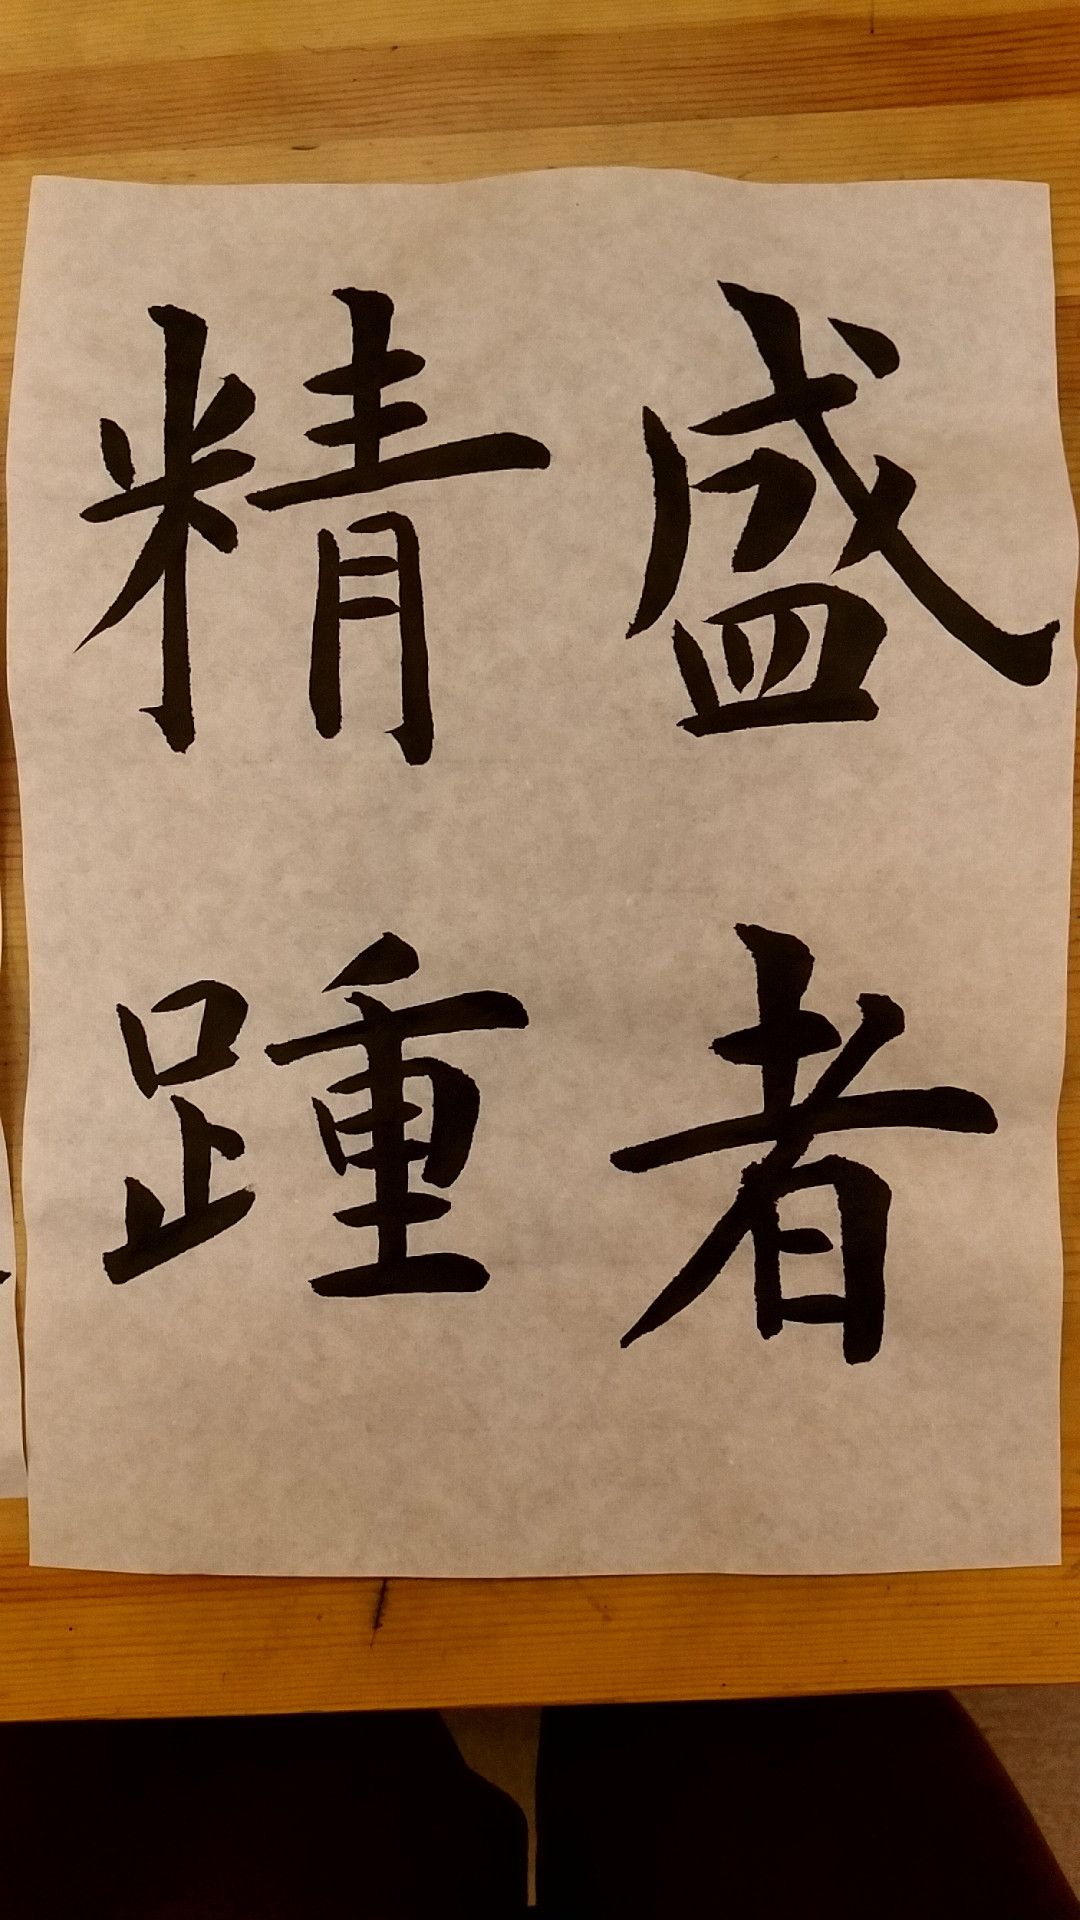 盛者
精踵